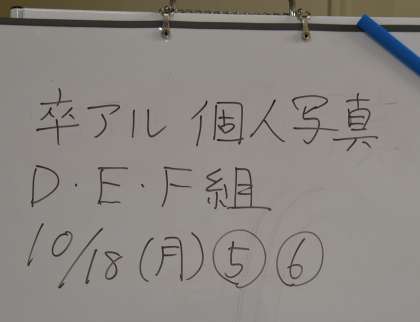 卒アル 個人写真
D・E・F組
10/18(月)⑤⑥